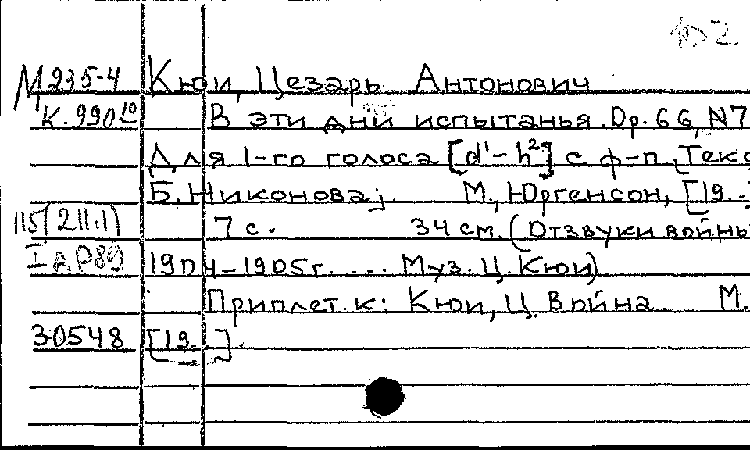 М 235-4 Кюи, Цезарь Антонович
К. 990 10 В эти дни испытанья. Op. 66, N7
Для 1-го голоса [d¹-h²] с ф-п. Текс
Б. Никонова. М., Юргенсон, [19.
115(211.1) 7 с. 34 см. (Отзвуки войны
1904-1905 г. ... Муз. Ц. Кюи)
Приплет. к: Кюи, Ц. Война М.
30548 [19..].